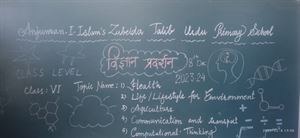 Anjuman-I-Islam's Zubeida Talib Urdu Primary School
विज्ञान प्रदर्शन
8th Dec
2023-24
CLASS LEVEL
Class: VI
Topic Name: 1) Health
2) Life / Lifestyle for Environment
3) Agriculture
4) Communication and Transport
5) Computational Thinking